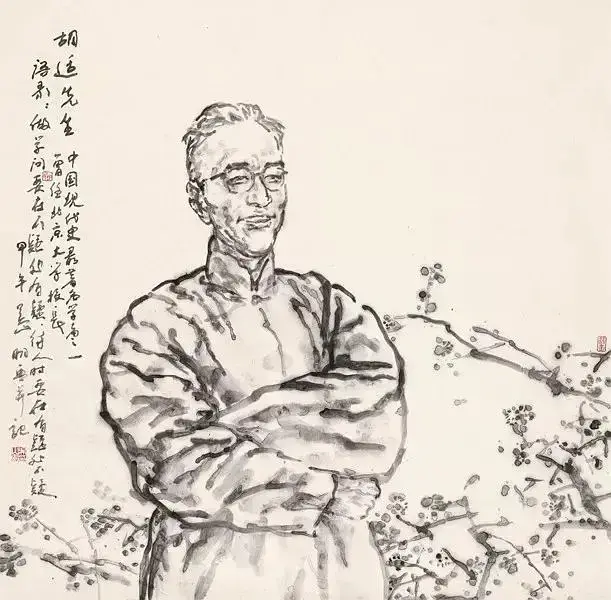 胡适先生
中国现代史最著名学者之一
曾任北京大学校长
语录：做学问要在不疑处有疑待人时要在有疑处不疑
甲午 并记